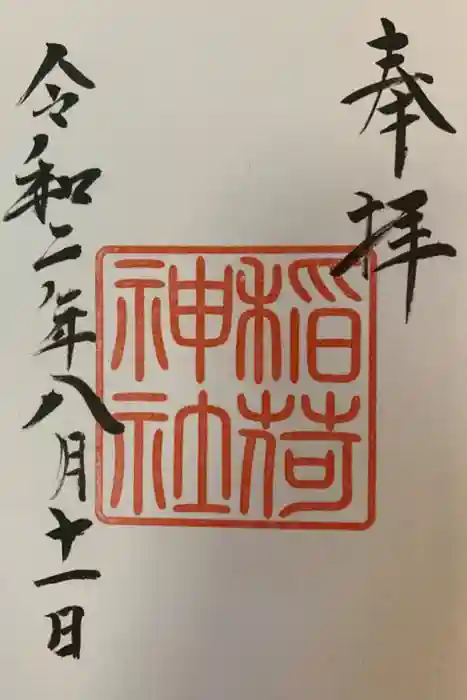 奉拝
稲荷
神社
令和二年八月十一日